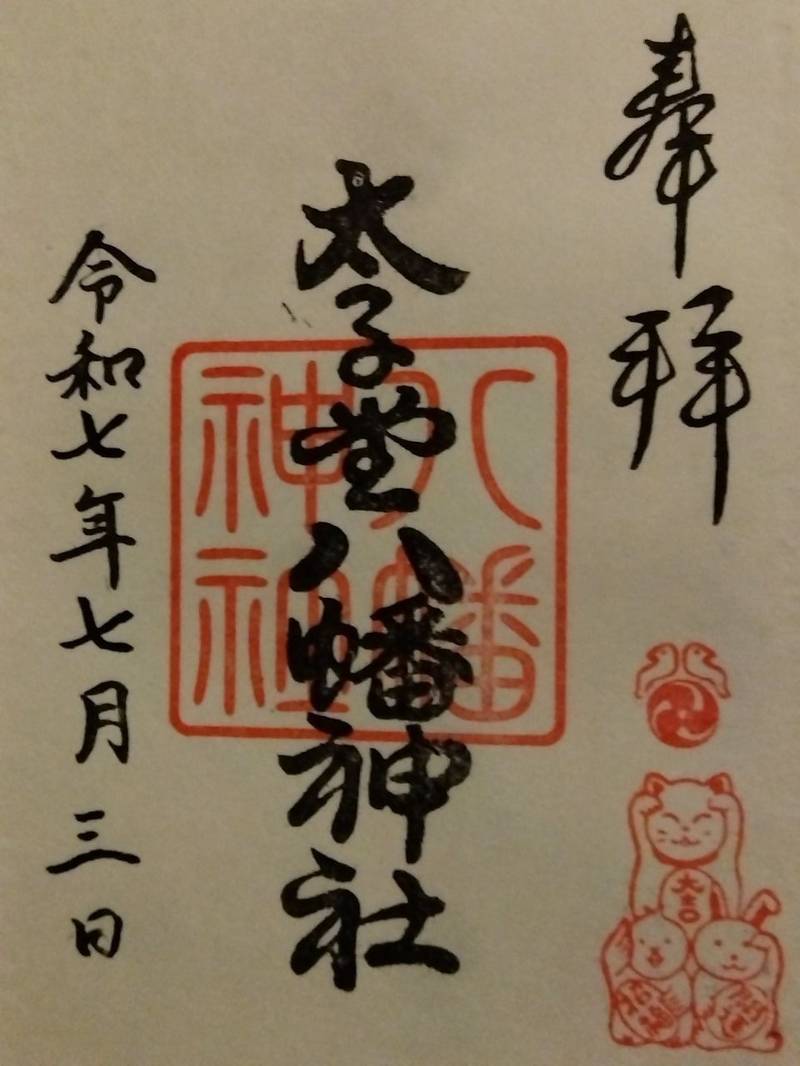 奉拝
太子堂八幡神社
八幡
神社
令和七年七月三日
大吉